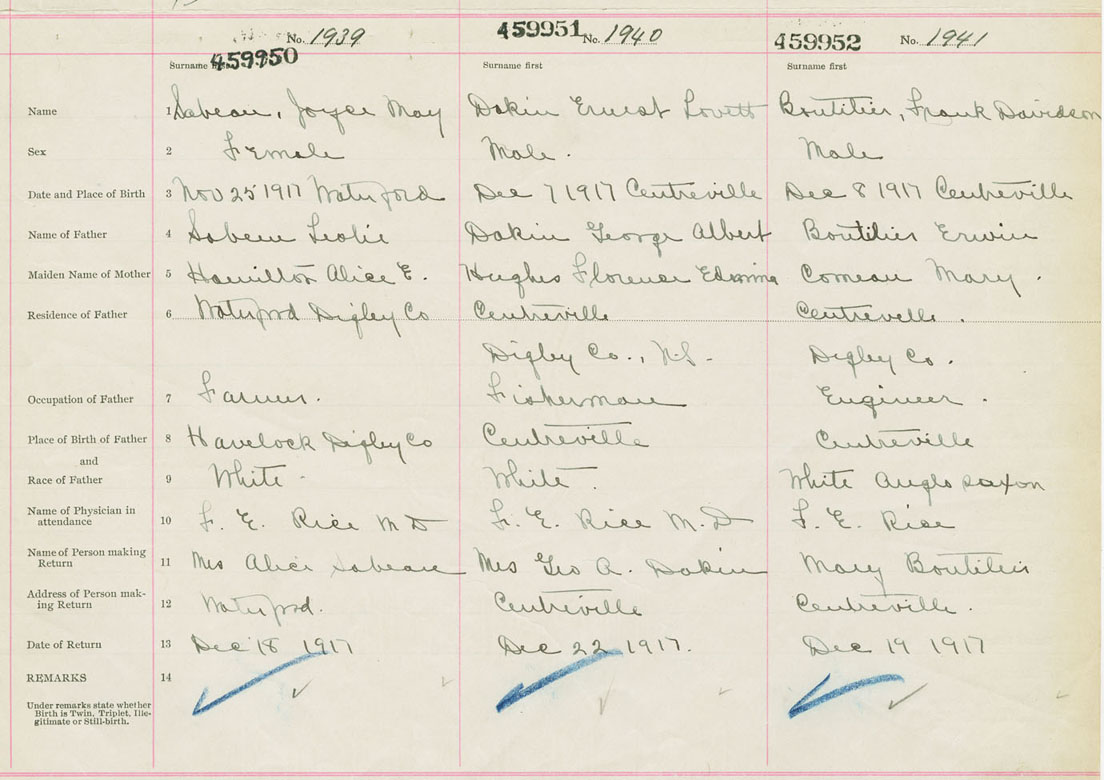 No. 1939 459951 No. 1940 459952 No. 1941
459950
Surname first Surname first Surname first
Name 1 Sabean, Joyce May Dakin Ernest Lovett Boutilier, Frank Davidson
Sex 2 Female Male. Male
Date and Place of Birth 3 Nov 25 1917 Waterford Dec 7 1917 Centreville Dec 8 1917 Centreville
Name of Father 4 Sabean Leslie Dakin George Albert Boutilier Erwin
Maiden Name of Mother 5 Hamilton Alice E. Hughes Florence Edwina Comeau Mary.
Residence of Father 6 Waterford Digby Co Centreville Centreville.
Digby Co., N.S. Digby Co.
Occupation of Father 7 Farmer. Fisherman Engineer.
Place of Birth of Father 8 Havelock Digby Co Centreville Centreville
and
Race of Father 9 White White. White Anglo saxon
Name of Physician in
attendance 10 F. E. Rice M D F. E. Rice M. D F. E. Rice
Name of Person making
Return 11 Mrs Alice Sabean Mrs Geo A. Dakin Mary Boutilier
Address of Person mak-
ing Return 12 Waterford. Centreville Centreville.
Date of Return 13 Dec 18 1917 Dec 22 1917. Dec 19 1917
REMARKS 14
Under remarks state whether
Birth is Twin, Triplet, Ille-
gitimate or Still-birth.